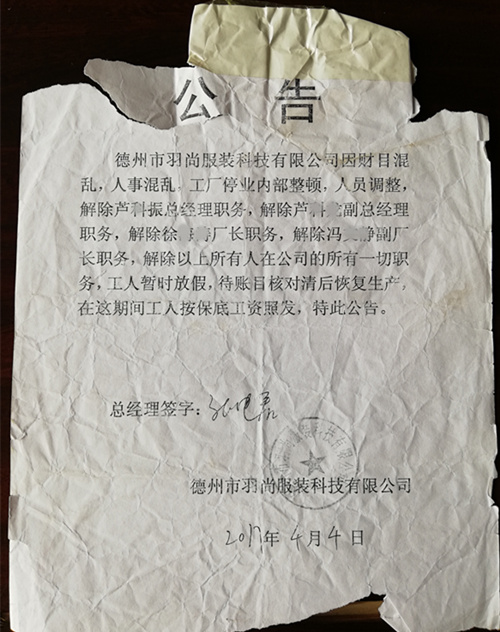 公 告
德州市羽尚服装科技有限公司因财目混
乱，人事混乱，工厂停业内部整顿，人员调整，
解除芦科振总经理职务，解除芦科 副总经理
职务，解除徐 厂长职务，解除冯 静副厂
长职务，解除以上所有人在公司的所有一切职
务，工人暂时放假，待账目核对清后恢复生产，
在这期间工人按保底工资照发，特此公告。
总经理签字：
德州市羽尚服装科技有限公司
2017年4月4日